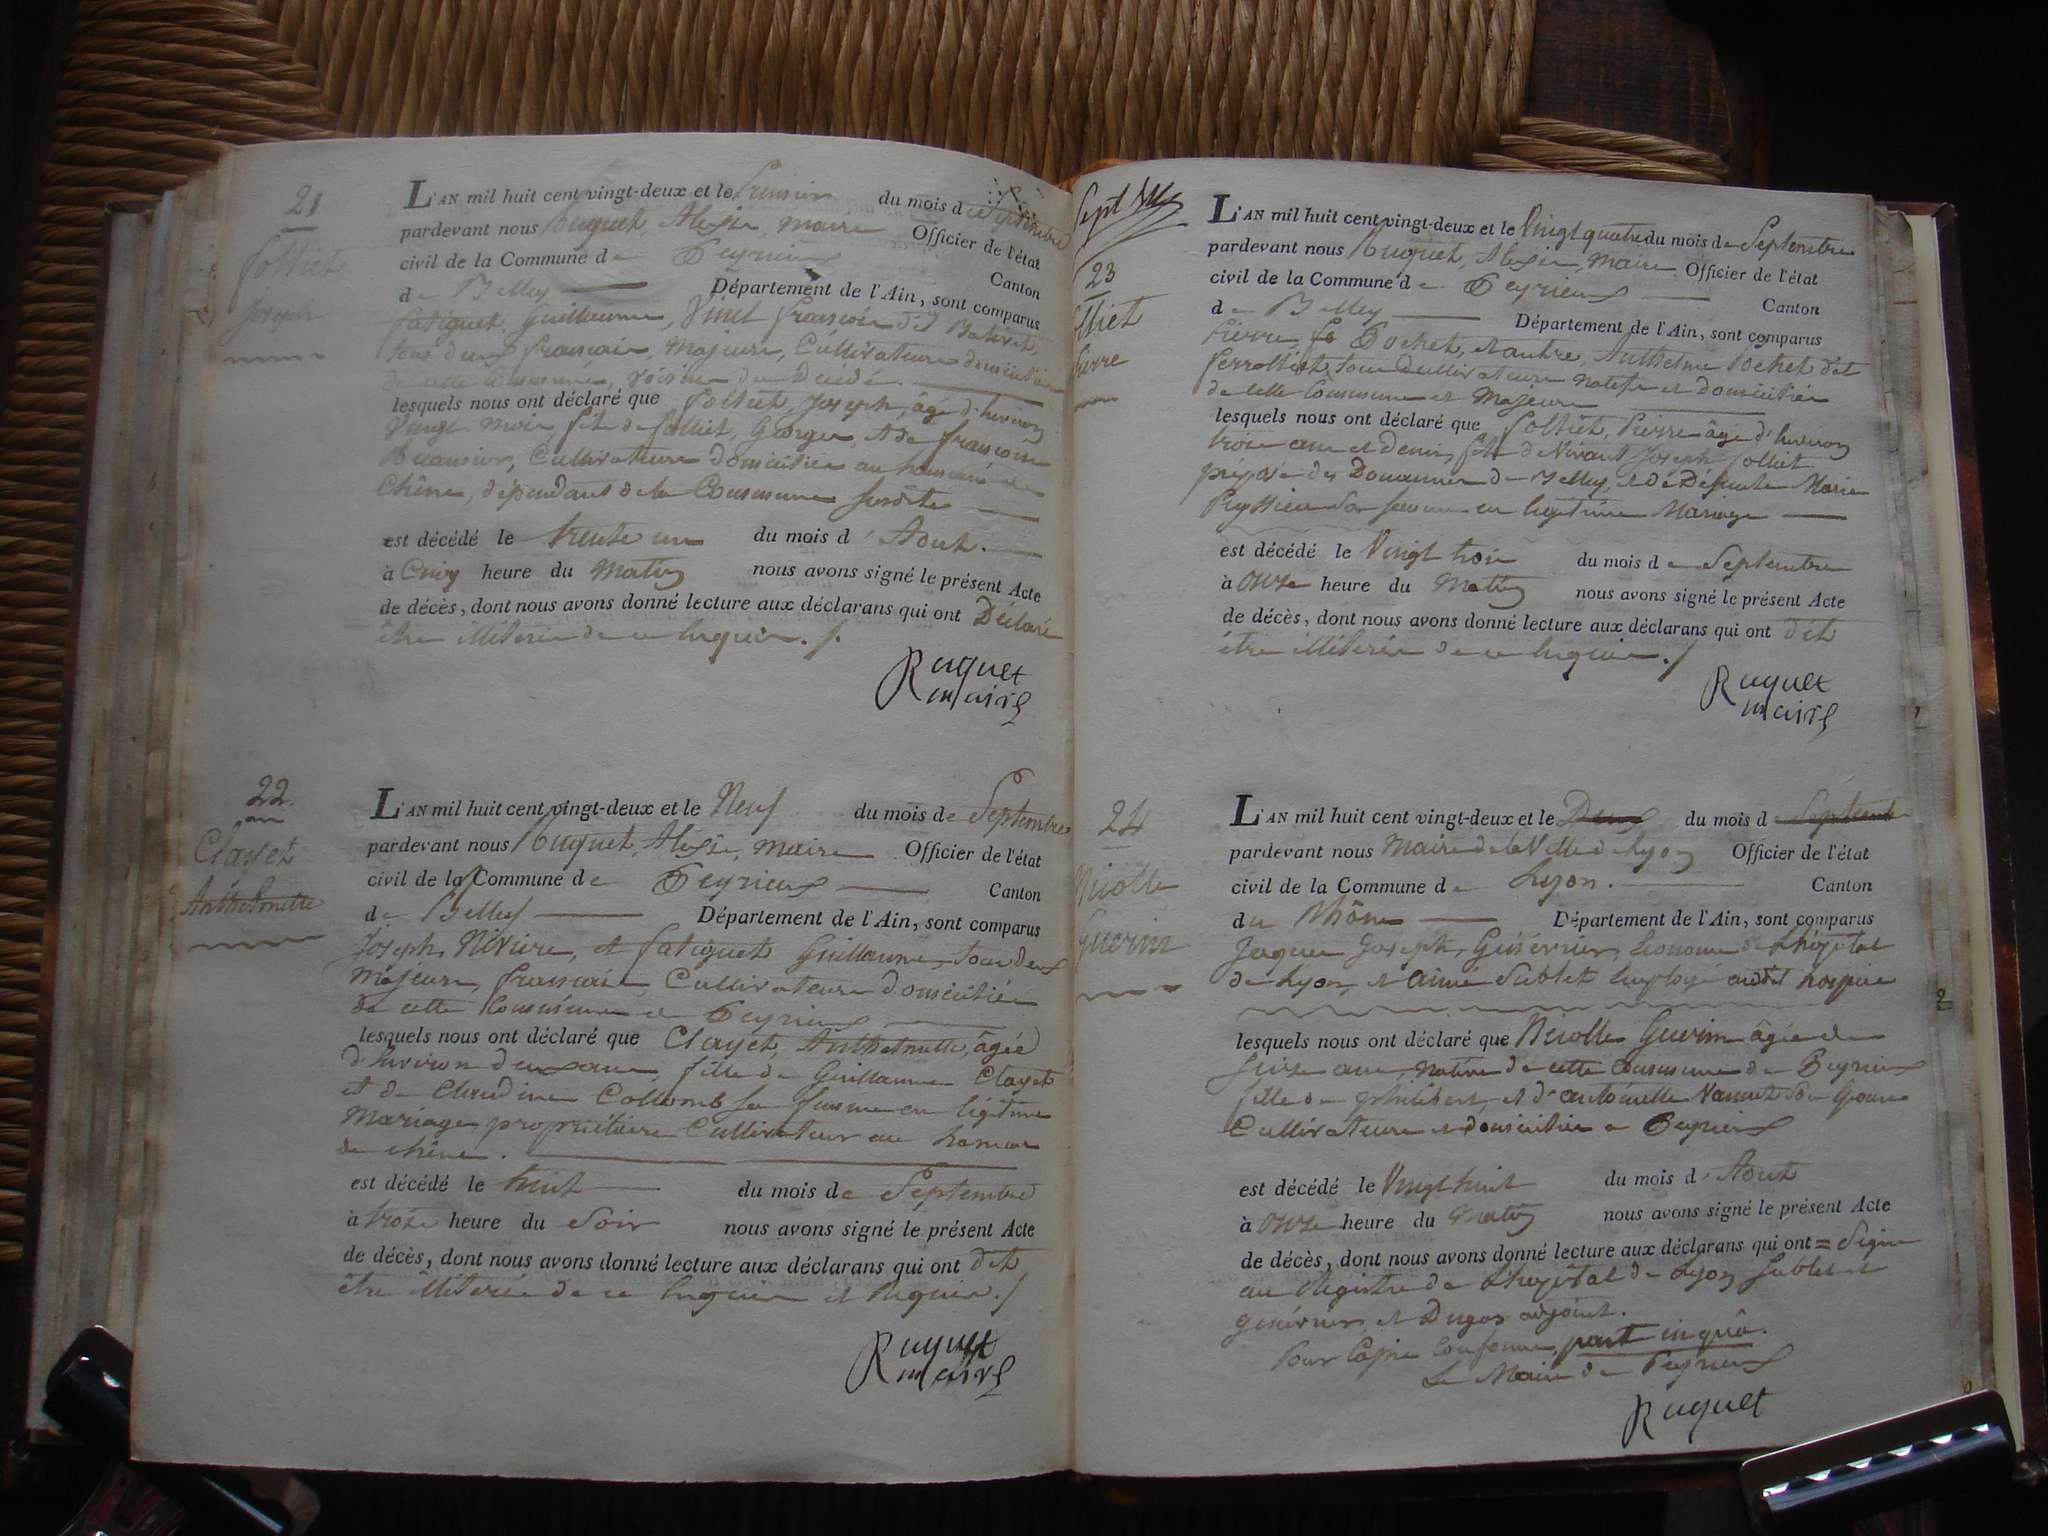 21
Folliet
Joseph
L'AN mil huit cent vingt-deux et le Premier du mois de Septembre
pardevant nous Ruquet, Alexis, maire Officier de l'état
civil de la Commune de Peyrieux Canton
de Belley Département de l'Ain, sont comparus
Fatiguet, Guillaume, Vinit François dit
tous deux français, Majeurs, Cultivateurs domiciliés
de cette Commune, voisins du Décédé.
lesquels nous ont déclaré que Folliet, Joseph, âgé d'environ
Vingt mois, fils de Folliet, George, et de françoise
Cultivateurs domiciliés au hameau de
Chêne, dépendant de la Commune susdite
est décédé le trente un du mois d'Aout.
à Cinq heure du Matin nous avons signé le présent Acte
de décès, dont nous avons donné lecture aux déclarans qui ont Déclaré
être illiterés de ce Enquis./.
Ruquet
maire
22
Clayet
Anthelmette
L'AN mil huit cent vingt-deux et le Neuf du mois de Septembre
pardevant nous Ruquet, Alexis, maire Officier de l'état
civil de la Commune de Peyrieux Canton
de Belley Département de l'Ain, sont comparus
Joseph Riviere, et Fatiguet Guillaume, tous deux
Majeurs, français, Cultivateurs domiciliés
de cette Commune de Peyrieux
lesquels nous ont déclaré que Clayet, Anthelmette, âgée
d'Environ deux ans, fille de Guillaume Clayet
et de Claudine Collomb sa femme en ligitime
Mariage, propriétaire Cultivateur au hameau
de chêne.
est décédé le huit du mois de Septembre
à trois heure du Soir nous avons signé le présent Acte
de décès, dont nous avons donné lecture aux déclarans qui ont dit
être illiterés de ce Enquis et Requis./
Ruquet
maire
Sept
23
Folliet
Pierre
L'AN mil huit cent vingt-deux et le Vingt quatre du mois de Septembre
pardevant nous Ruquet, Alexis, maire Officier de l'état
civil de la Commune de Peyrieux Canton
de Belley Département de l'Ain, sont comparus
Pierre, Pochet, et autre, Anthelme Pochet dit
tous Cultivateurs natifs et Domiciliés
de cette Commune et Majeurs
lesquels nous ont déclaré que Folliet, Pierre âgé d'Environ
trois ans et Demi, fils de Vivant Joseph Folliet
préposé des Douannes de Belley, et de Défunte Marie
sa femme en legitime Mariage
est décédé le Vingt trois du mois de Septembre
à Onze heure du Matin nous avons signé le présent Acte
de décès, dont nous avons donné lecture aux déclarans qui ont dit
être illiterés de ce Enquis./
Ruquet
maire
24
Nicolle
Guerin
L'AN mil huit cent vingt-deux et le Deux du mois de Septembre
pardevant nous Maire de la Ville de Lyon Officier de l'état
civil de la Commune de Lyon. Canton
du Rhône Département de l'Ain, sont comparus
Jaques Joseph, Econome de L'hôpital
de Lyon, et aimé Sublet Employé audit hospice
lesquels nous ont déclaré que Nicolle Guerin âgée de
Seize ans, native de cette Commune de Peyrieux
fille de philibert, et d'antoinette Vannet
Cultivateurs et domiciliés a Peyrieux
est décédé le Vingt huit du mois d'Aout
à Onze heure du Matin nous avons signé le présent Acte
de décès, dont nous avons donné lecture aux déclarans qui ont = Signe
au Régistre de L'hopital de Lyon Sublet et
et Dugas adjoint.
Pour Copie Conforme,
Le Maire de Peyrieux
Ruquet